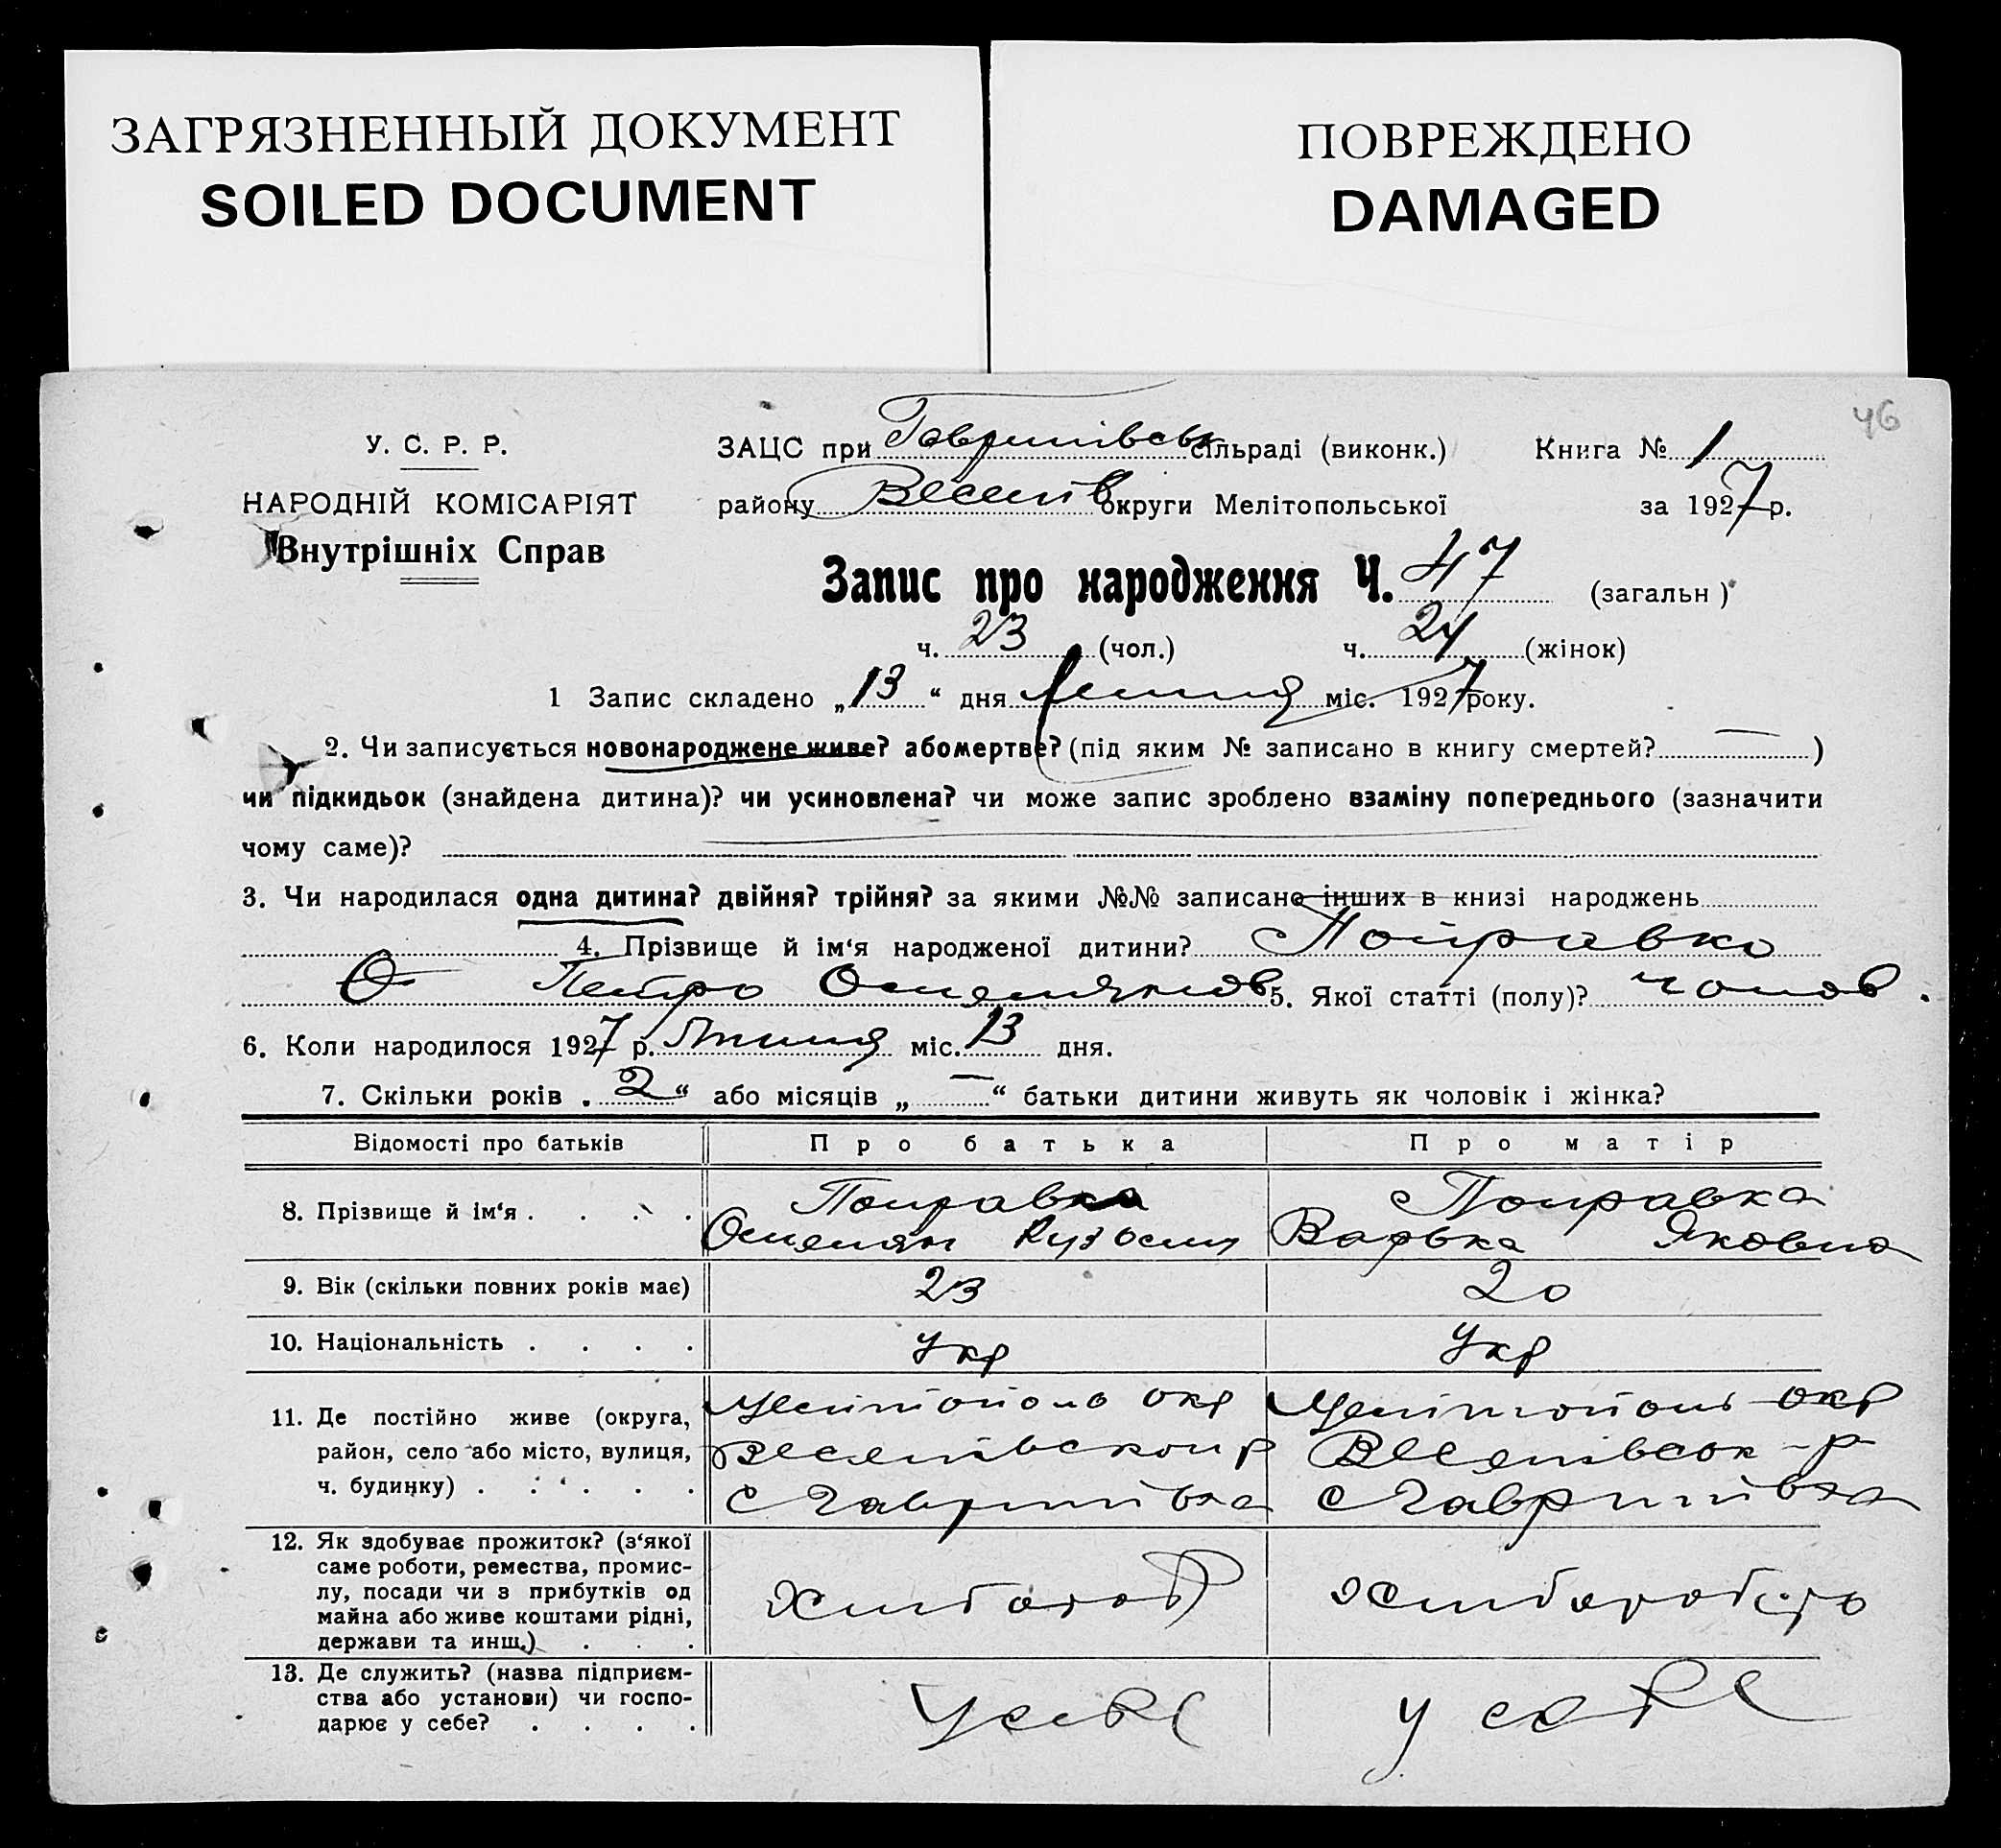 ЗАГРЯЗНЕННЫЙ ДОКУМЕНТ
SOILED DOCUMENT
ПОВРЕЖДЕНО
DAMAGED
46
У. С. Р. Р.
НАРОДНІЙ КОМІСАРІЯТ
Внутрішніх Справ
ЗАЦС при Гаврилівськ сільраді (виконк.) Книга № 1
району Веселів округи Мелітопольської за 1927 р.
Запис про народження Ч. 47 (загальн)
ч. 23 (чол.) ч. 24 (жінок)
1 Запис складено „13“ дня Липня міс. 1927 року.
2. Чи записується новонароджене живе? або мертве? (під яким № записано в книгу смертей? — )
чи підкидьок (знайдена дитина)? чи усиновлена? чи може запис зроблено взаміну попереднього (зазначити
чому саме)?
3. Чи народилася одна дитина? двійня? трійня? за якими №№ записано інших в книзі народжень
4. Прізвище й ім‘я народженої дитини? Поправко
Петро 5. Якої статті (полу)? чолов.
6. Коли народилося 1927 р. Липня міс. 13 дня.
7. Скільки років „2“ або місяців „—“ батьки дитини живуть як чоловік і жінка?
Відомості про батьків Про батька Про матір
8. Прізвище й ім‘я . . . . Поправка Поправка
Варька Яковна
9. Вік (скільки повних років має) 23 20
10. Національність . . . . Укр Укр
11. Де постійно живе (округа, Мелітополь окр Мелітополь окр
район, село або місто, вулиця, Веселівськой р Веселівськ-р
ч. будинку) . . . . . с Гаврилівка с Гаврилівка
12. Як здобуває прожиток? (з‘якої
саме роботи, ремества, промис-
лу, посади чи з прибутків од
майна або живе коштами рідні, Хлібороб Хліборобство
держави та инш.) . . .
13. Де служить? (назва підприєм-
ства або установи) чи госпо- У себе У себе
дарює у себе? . . . .